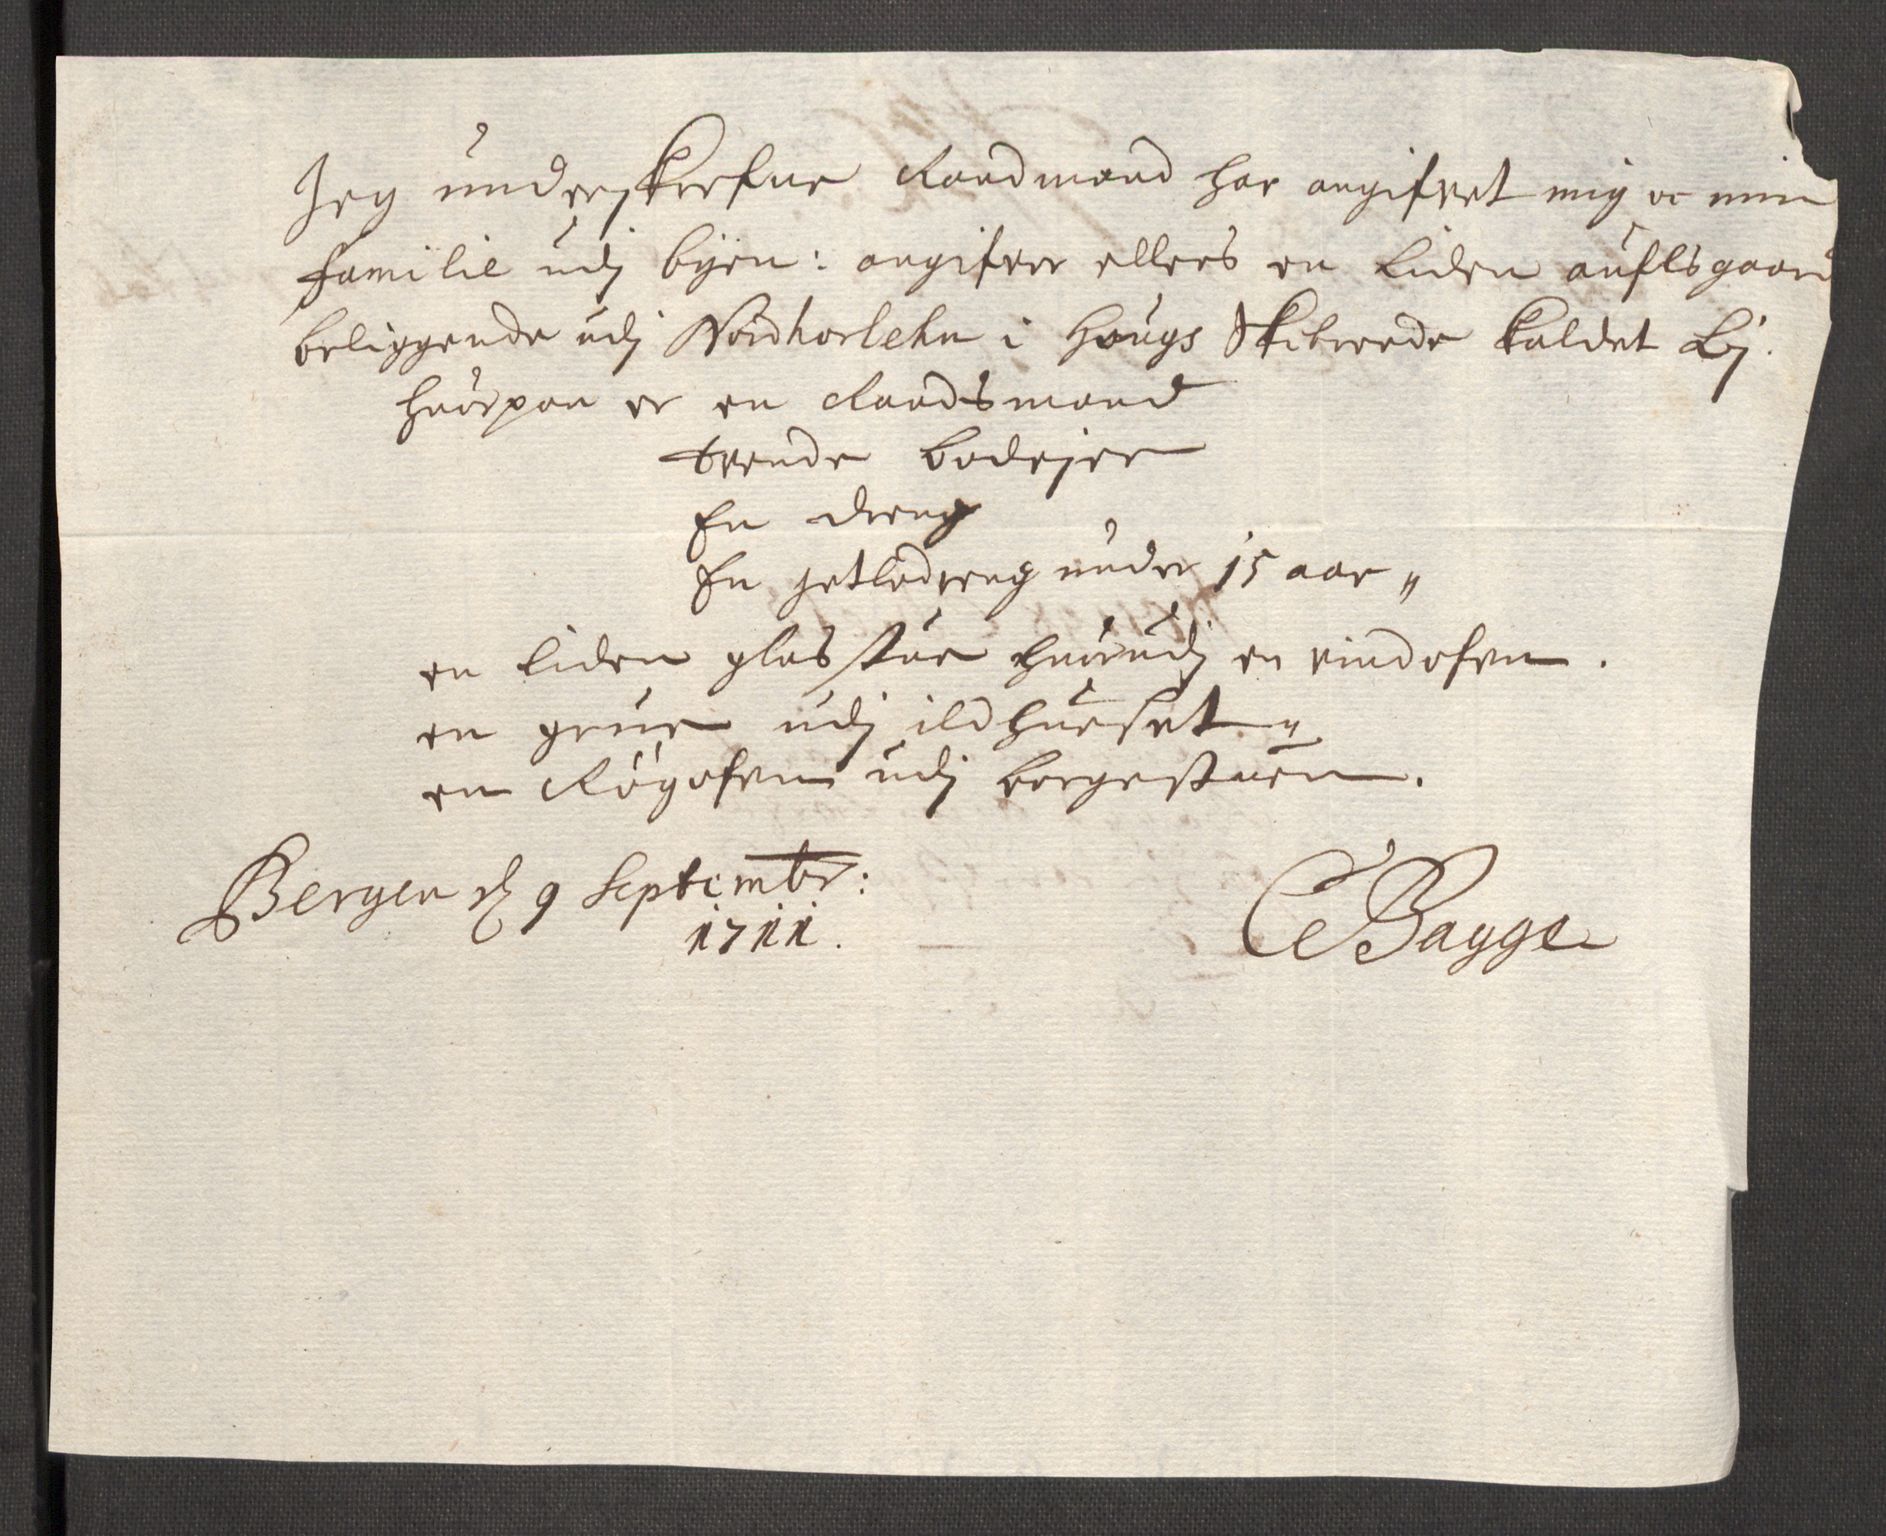 Jeg underskrefne Raadmand har angifvet mig oc min
familie udj byen: angifver ellers en liden auflsgaard
beliggende udj Nordhorlehn i Hougs Skibrede kaldet Lij.
huorpaa er en Raadsmand
trende bodejer
En dreng
En getledreng under 15 aar „
en liden glasstue huorudj en vindofven.
en grue udj ildhueset „
en Rögofven udj borgestuen.
Bergen d 9 Septembr:
1711.
C Bagge